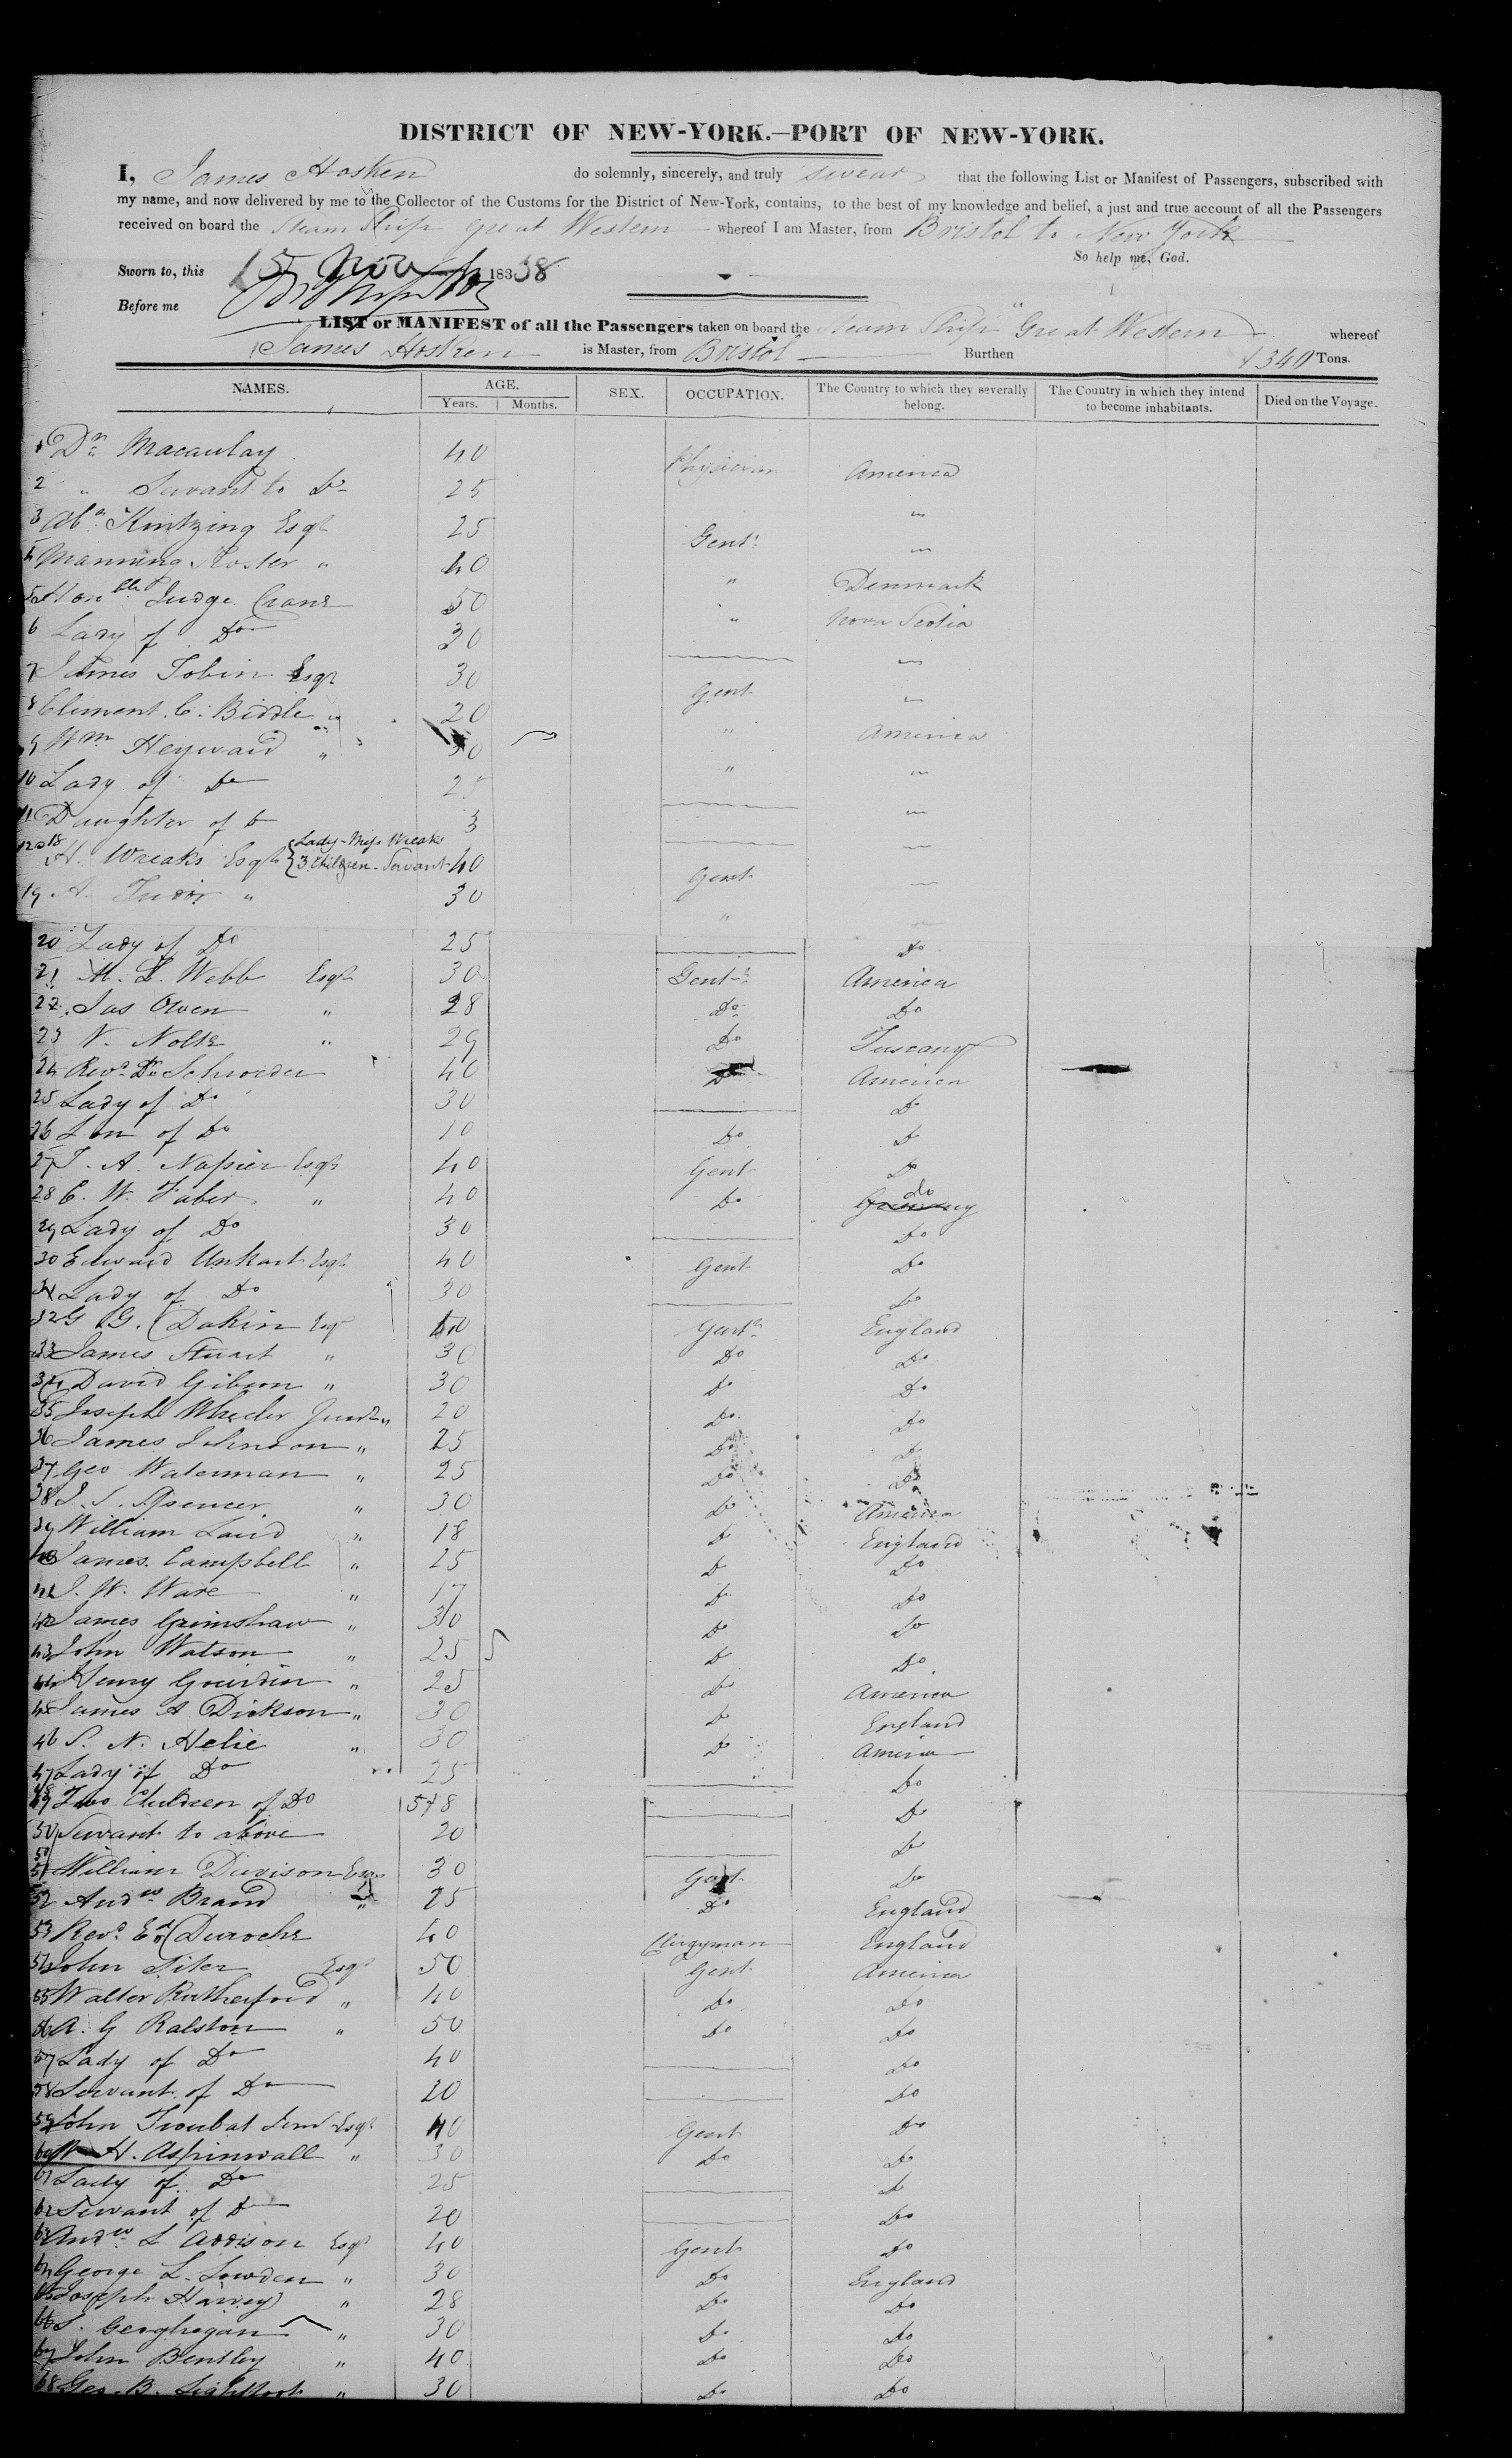 DISTRICT OF NEW-YORK.—PORT OF NEW-YORK.
I, James Hosken do solemnly, sincerely, and truly swear that the following List or Manifest of Passengers, subscribed with
my name, and now delivered by me to the Collector of the Customs for the District of New-York, contains, to the best of my knowledge and belief, a just and true account of all the Passengers
received on board the Steam Ship Great Western whereof I am Master, from Bristol to New York
So help me, God.
Sworn to, this 15 Nov 1838
Before me
LIST or MANIFEST of all the Passengers taken on board the Steam Ship "Great Western whereof
James Hosken is Master, from Bristol Burthen 1340 Tons.
NAMES. AGE. SEX. OCCUPATION. The Country to which they severally belong. The Country in which they intend to become inhabitants. Died on the Voyage.
Years. Months.
1 Dr Macaulay 40 Physician America
2 " Servant to Do 25 "
3 Abm Kintzing Esqr 25 Gent. "
4 Manning Foster " 40 " Denmark
5 Honble Judge Crane 50 " Nova Scotia
6 Lady of Do 30 "
7 James Tobin Esqr 30 Gent "
8 Clement C. Biddle " 20 " America
9 Wm Heyward " 30 " "
10 Lady of Do 25 "
11 Daughter of Do 3 "
12 a 18 H. Wreaks Esqr {Lady - Miss Wreaks 3 Children - Servant 40 Gent "
19 A. Tudor " 30 "
20 Lady of Do 25 Do
21 M. L. Webb Esqr 30 Gent America
22 Jas Owen " 28 Do Do
23 V. Nolte " 29 Do Tuscany
24 Revd Dr Schroeder 40 Do America
25 Lady of Do 30 Do
26 Son of Do 10 Do Do
27 T. A. Napier Esqr 40 Gent Do
28 C. W. Faber " 40 Do Germany do
29 Lady of Do 30 Do
30 Edward Unkart Esqr 40 Gent Do
31 Lady of Do 30 Do
32 G G. Dakin Esqr 40 Gent England
33 James Stuart " 30 Do Do
34 David Gibson " 30 Do Do
35 Joseph Wheeler Junr " 20 Do Do
36 James Johnson " 25 Do Do
37 Geo Waterman " 25 Do Do
38 J. S. Spencer " 30 Do America
39 William Laird " 18 Do England
40 James Campbell " 25 Do Do
41 J. W. Ware " 17 Do Do
42 James Grimshaw " 30 Do Do
43 John Watson " 25 Do Do
44 Henry Gourdin " 25 Do America
45 James A Dickson " 30 Do England
46 S. N. Helie " 30 Do America
47 Lady of Do 25 Do
48 49 Two Children of Do 5 & 8 Do
50 Servant to above 20 Do
51 William Davison Esqr 30 Gent Do
52 Andw Brand " 25 Do England
53 Revd Ed Duroche 40 Clergyman England
54 John Siter Esqr 50 Gent America
55 Walter Rutherford " 40 Do Do
56 A. G Ralston " 50 Do Do
57 Lady of Do 40 Do
58 Servant of Do 20 Do
59 John Troubat Senr Esqr 40 Gent Do
60 W H. Aspinwall " 30 Do Do
61 Lady of Do 25 Do
62 Servant of Do 20 Do
63 Andw L Addison Esqr 40 Gent Do
64 George L. Lowden " 30 Do England
65 Joseph Harvey " 28 Do Do
66 S. Geoghegan " 30 Do Do
67 John Bentley " 40 Do Do
68 Geo. B. Lightfoot " 30 Do Do